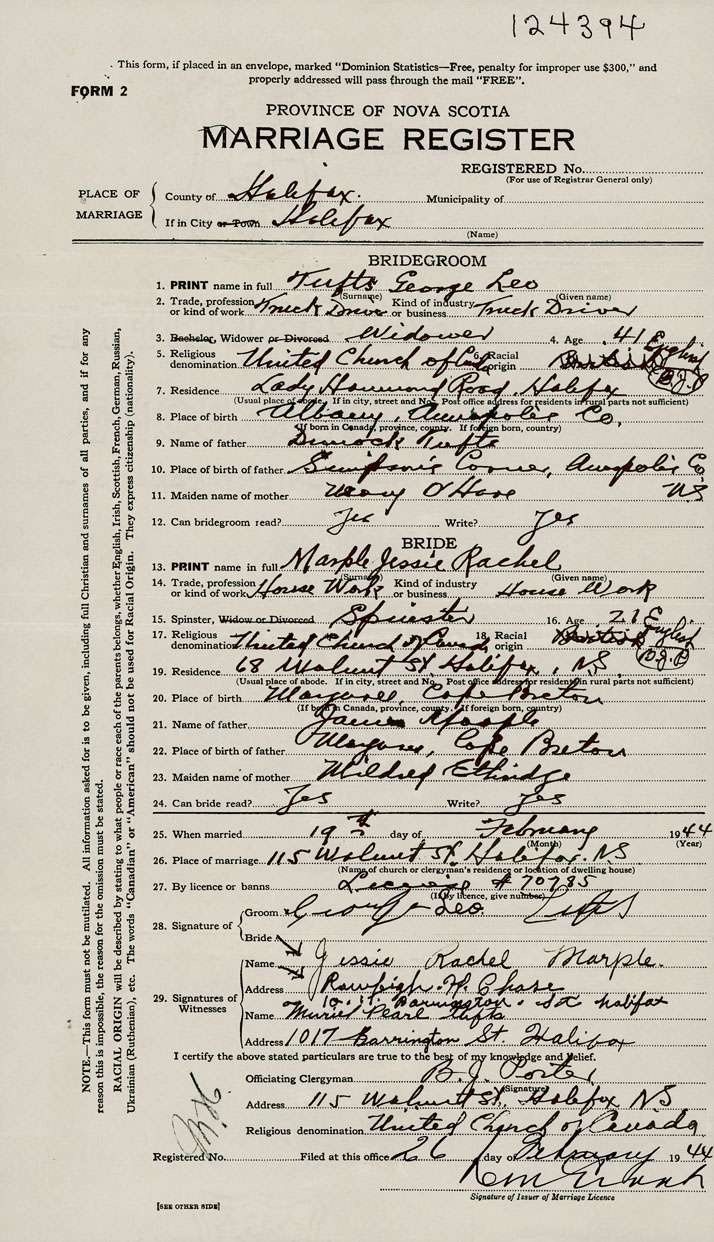 124394
This form, if placed in an envelope, marked "Dominion Statistics—Free, penalty for improper use $300," and
properly addressed will pass through the mail "FREE".
FORM 2
PROVINCE OF NOVA SCOTIA
MARRIAGE REGISTER
REGISTERED No.
(For use of Registrar General only)
PLACE OF MARRIAGE
County of Halifax. Municipality of
If in City or Town Halifax
(Name)
BRIDEGROOM
1. PRINT name in full Tufts George Leo
(Surname) (Given name)
2. Trade, profession or kind of work Truck Driver Kind of industry or business Truck Driver
3. Bachelor, Widower or Divorced Widower 4. Age 41
5. Religious denomination United Church of Can 6. Racial origin British English B.J.P
7. Residence Lady Hammond Road, Halifax
(Usual place of abode. If in city, street and No. Post office address for residents in rural parts not sufficient)
8. Place of birth Albany, Annapolis Co,
(If born in Canada, province, county. If foreign born, country)
9. Name of father Dimock Tufts
10. Place of birth of father Simpson's Corner, Annapolis Co
11. Maiden name of mother Mary O'Hare NS
12. Can bridegroom read? Yes Write? Yes
BRIDE
13. PRINT name in full Marple Jessie Rachel
(Surname) (Given name)
14. Trade, profession or kind of work House Work Kind of industry or business House Work
15. Spinster, Widow or Divorced Spinster 16. Age 21
17. Religious denomination United Church of Canad 18. Racial origin British English B.J.P
19. Residence 68 Walnut St Halifax, NS
(Usual place of abode. If in city, street and No. Post office address for resident in rural parts not sufficient)
20. Place of birth Margaree, Cape Breton
(If born in Canada, province, county. If foreign born, country)
21. Name of father James Marple
22. Place of birth of father Margaree, Cape Breton
23. Maiden name of mother Mildred Ethridge
24. Can bride read? Yes Write? Yes
25. When married 19th day of February 1944
(Month) (Year)
26. Place of marriage 115 Walnut St. Halifax. NS
(Name of church or clergyman's residence or location of dwelling house)
27. By licence or banns License # 70785
(If by licence, give number)
28. Signature of
Groom George Leo Tufts
Bride
29. Signatures of Witnesses
Name Jessie Rachel Marple.
Address Rawleigh H. Chase
1017 Barrington St Halifax
Name Muriel Pearl Tufts
Address 1017 Barrington St. Halifax
I certify the above stated particulars are true to the best of my knowledge and belief.
Officiating Clergyman B. J. Porter
(Signature)
Address 115 Walnut St, Halifax NS
Religious denomination United Church of Canada
Registered No. Filed at this office 26 day of February 1944
Signature of Issuer of Marriage Licence
[SEE OTHER SIDE]
NOTE.—This form must not be mutilated. All information asked for is to be given, including full Christian and surnames of all parties, and if for any
reason this is impossible, the reason for the omission must be stated.
RACIAL ORIGIN will be described by stating to what people or race each of the parents belongs, whether English, Irish, Scottish, French, German, Russian,
Ukrainian (Ruthenian), etc. The words "Canadian" or "American" should not be used for Racial Origin. They express citizenship (nationality).